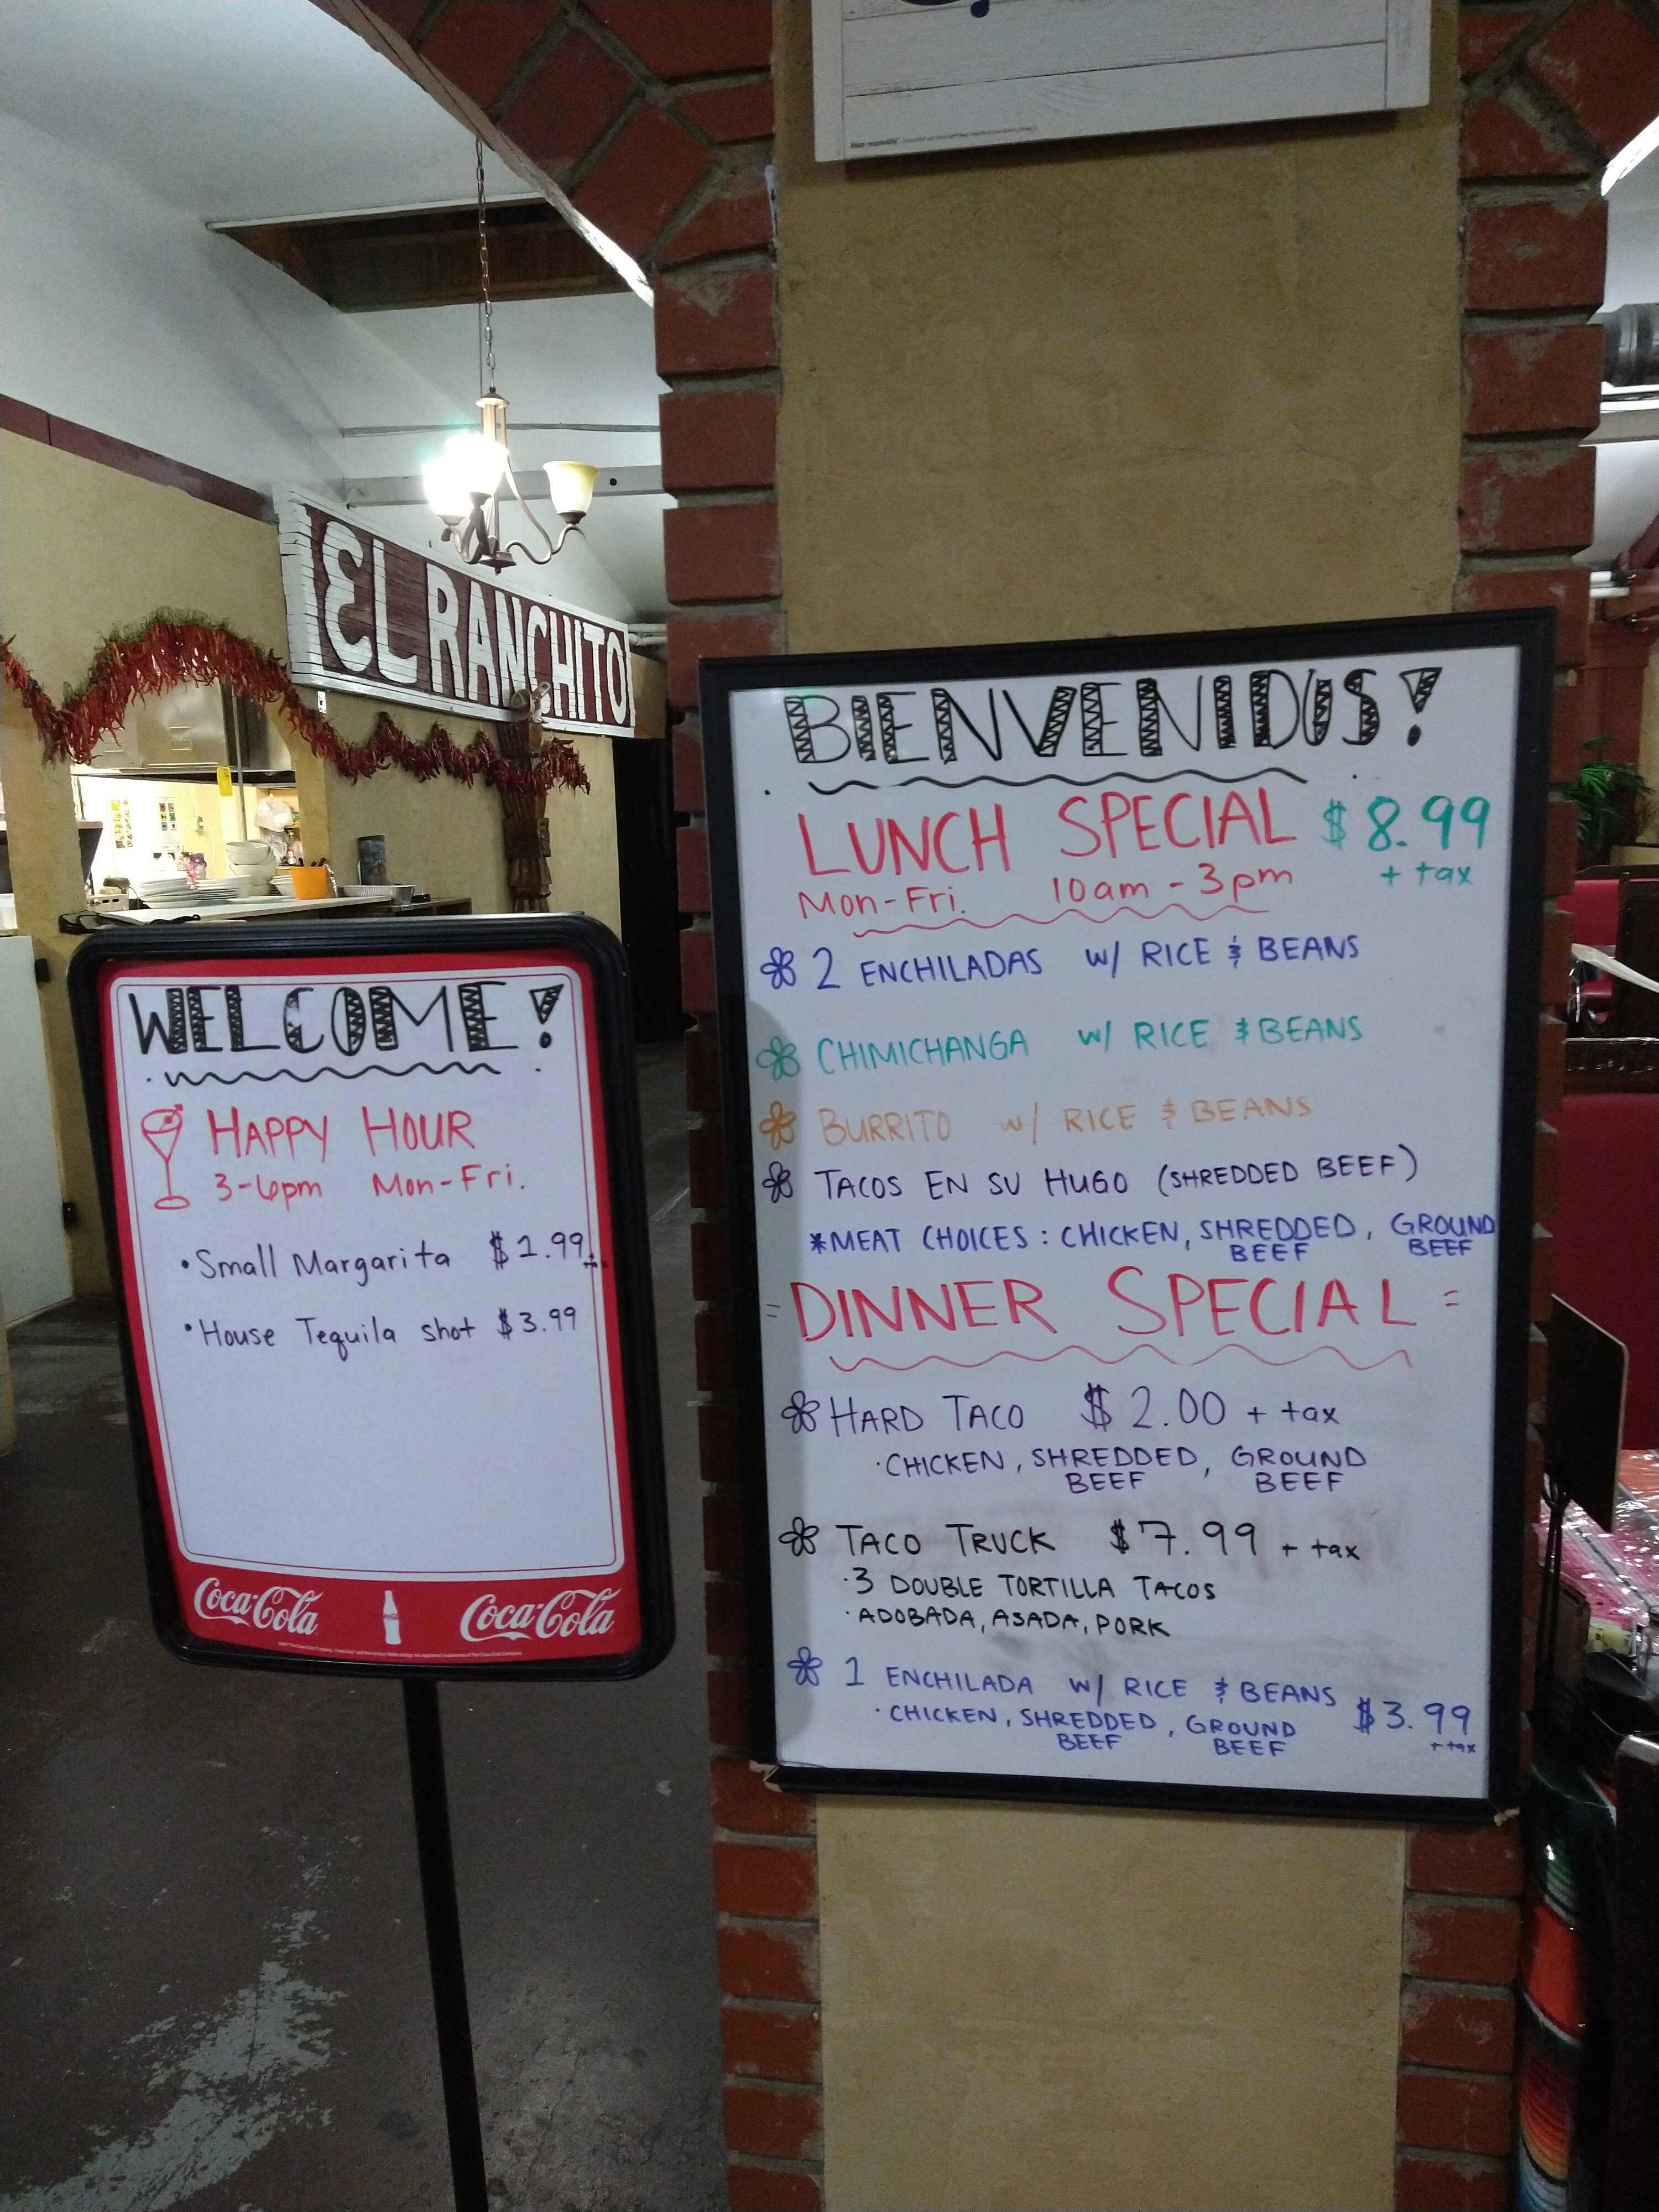 EL RANCHITO
WELCOME!
HAPPY HOUR
3-6pm Mon-Fri.
• Small Margarita $1.99 + tax
• House Tequila shot $3.99
Coca-Cola Coca-Cola
BIENVENIDOS!
LUNCH SPECIAL $8.99
Mon-Fri. 10am - 3pm + tax
2 ENCHILADAS W/ RICE & BEANS
CHIMICHANGA W/ RICE & BEANS
BURRITO W/ RICE & BEANS
TACOS EN SU HUGO (SHREDDED BEEF)
*MEAT CHOICES: CHICKEN, SHREDDED BEEF, GROUND BEEF
= DINNER SPECIAL =
HARD TACO $2.00 + tax
· CHICKEN, SHREDDED BEEF, GROUND BEEF
TACO TRUCK $7.99 + tax
· 3 DOUBLE TORTILLA TACOS
· ADOBADA, ASADA, PORK
1 ENCHILADA W/ RICE & BEANS $3.99
· CHICKEN, SHREDDED BEEF, GROUND BEEF + tax